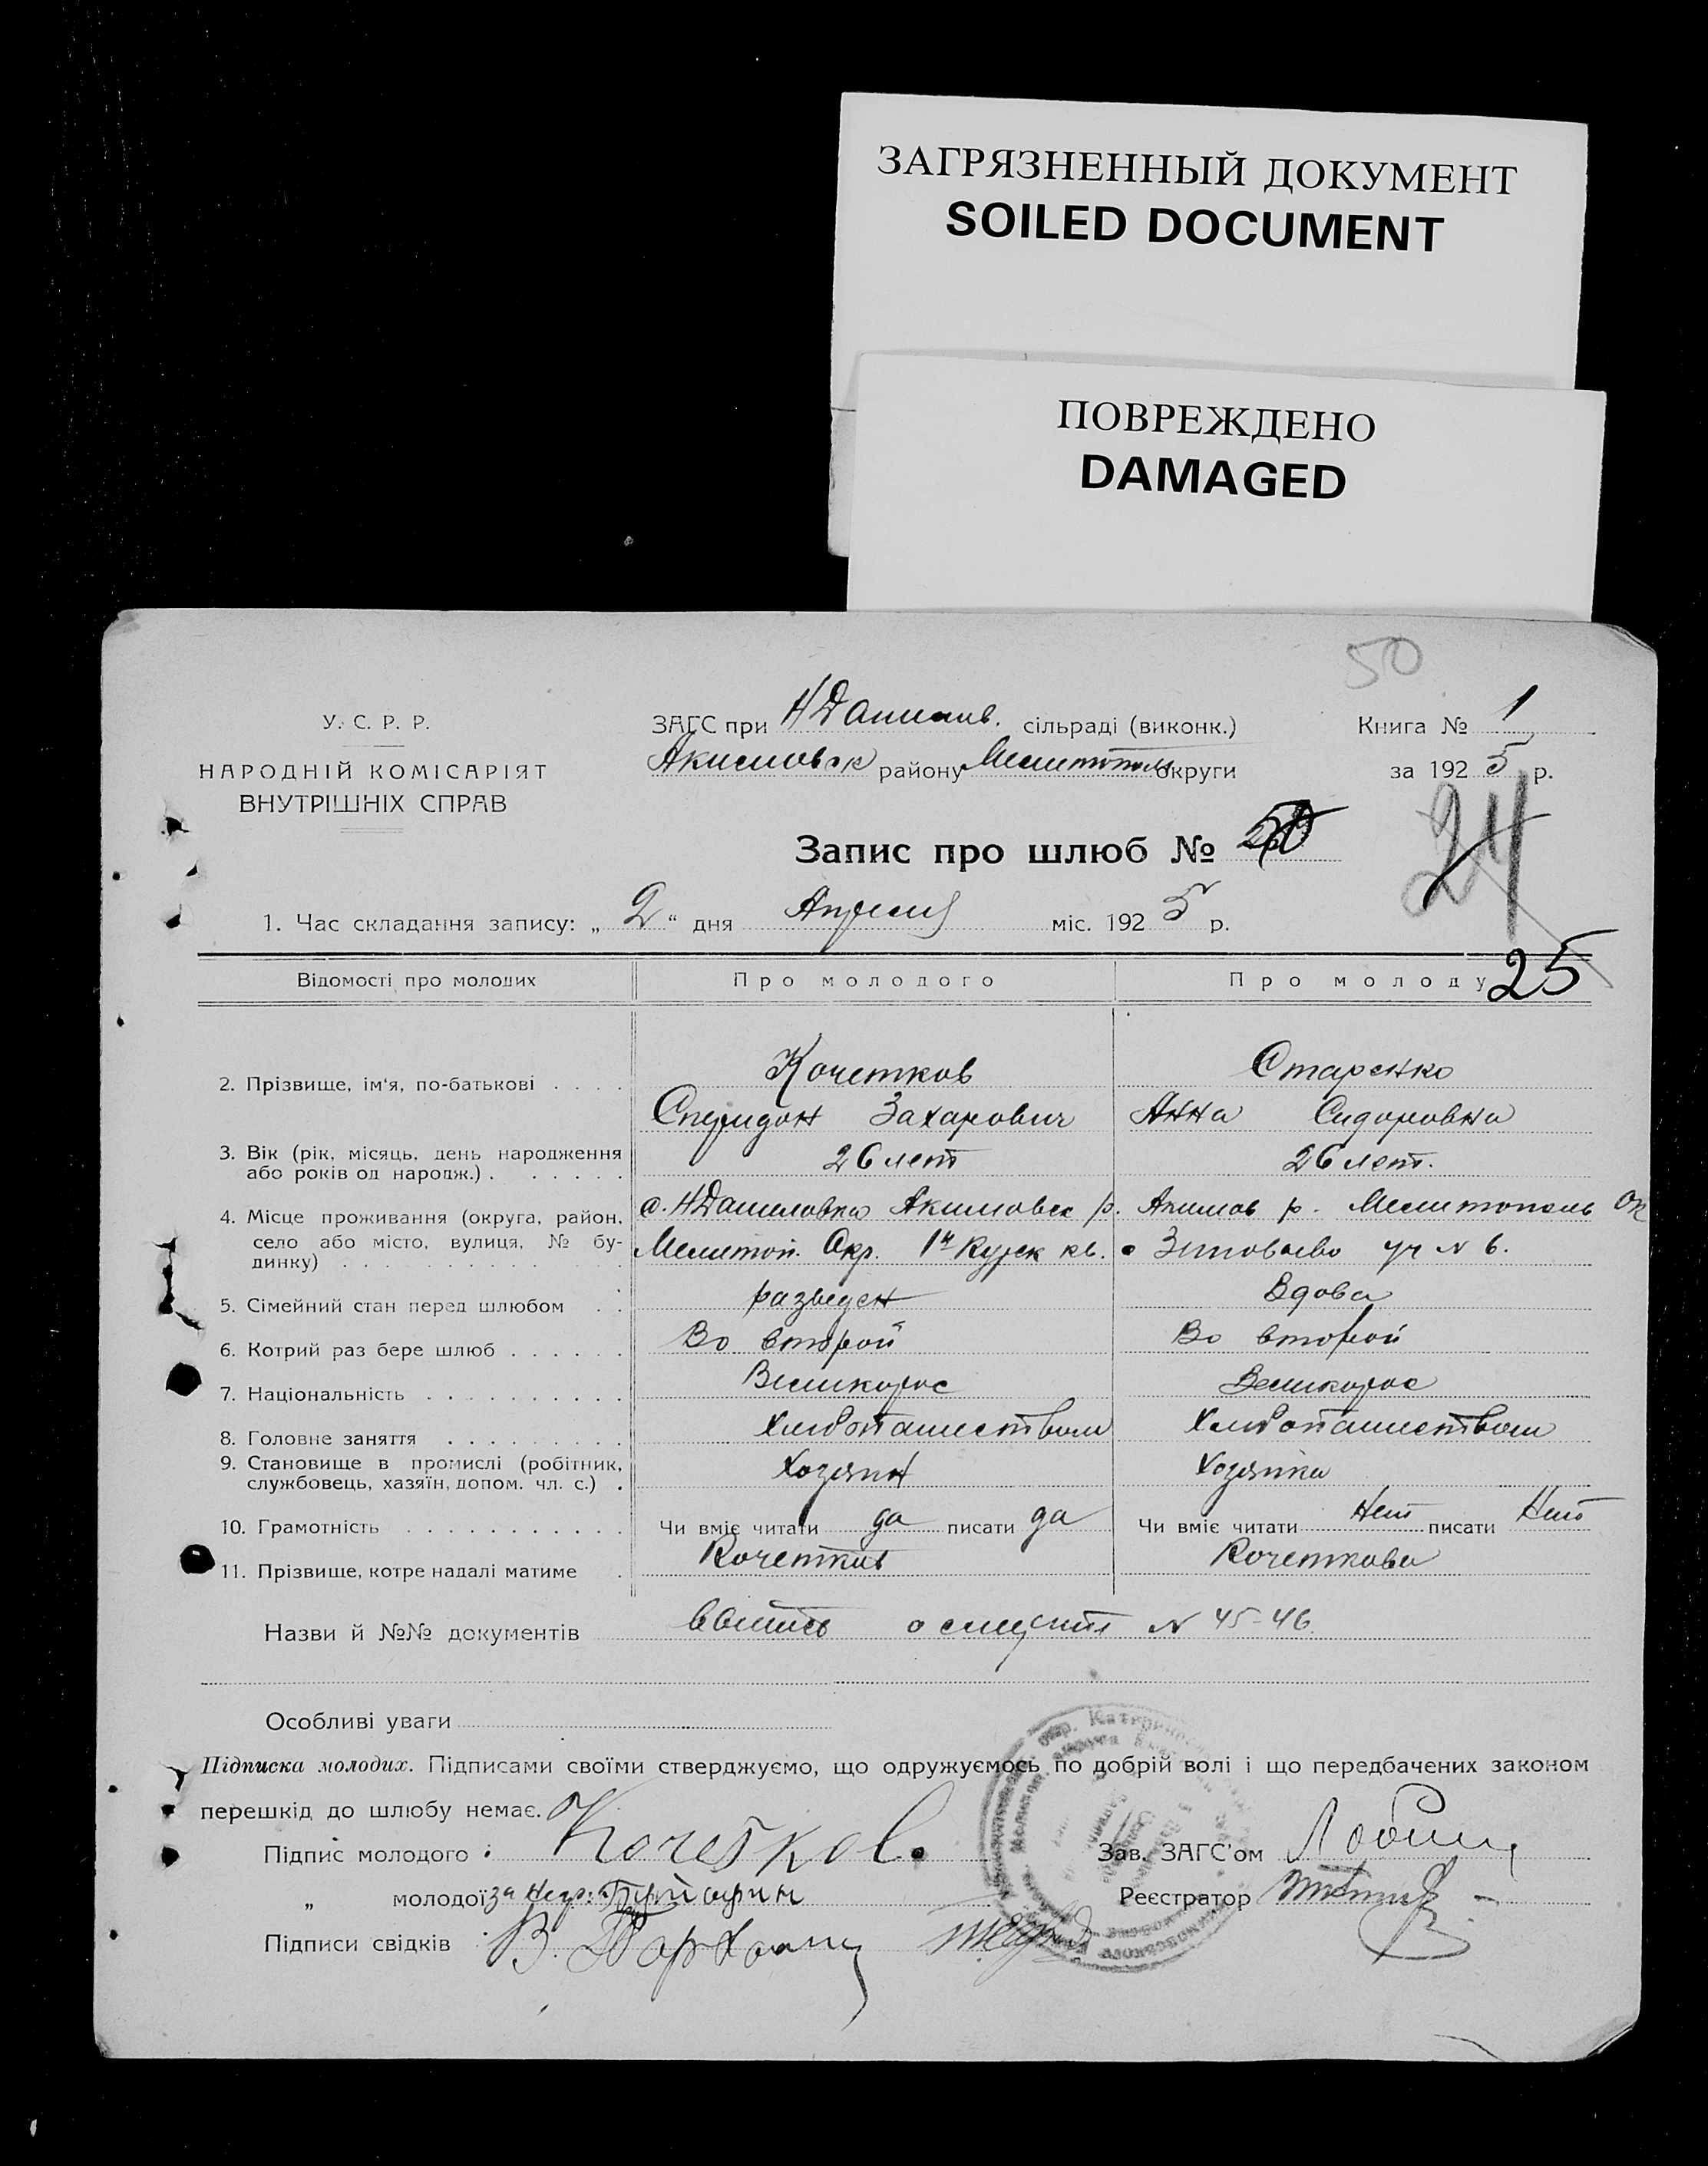 ЗАГРЯЗНЕННЫЙ ДОКУМЕНТ
SOILED DOCUMENT
ПОВРЕЖДЕНО
DAMAGED
50
У. С. Р. Р.
НАРОДНІЙ КОМІСАРІЯТ
ВНУТРІШНІХ СПРАВ
ЗАГС при НДанилив. сільраді (виконк.)
Акимовск району Мелитополь округи
Книга № 1
за 1925 р.
Запис про шлюб №
24
1. Час складання запису: „ 2 “ дня Апреля міс. 1925 р.
25
Відомості про молодих Про молодого Про молоду
2. Прізвище, ім'я, по-батькові . . . . Кочетков Старенко
Спиридон Захарович Анна Сидоровна
3. Вік (рік, місяць, день народження
або років од народж.) . . . . . . 26 лет 26 лет.
4. Місце проживання (округа, район, с. НДаниловка Акимовск р. Акимов р. Мелитополь Ок
село або місто, вулиця, № бу-
динку) . . . . . . . . . . Мелитоп. Окр. 1й Курск кв. с Зиновьево уч № 6.
5. Сімейний стан перед шлюбом . . разведен Вдова
6. Котрий раз бере шлюб . . . . . . Во второй Во второй
7. Національність . . . . . . . . . . Великорос Великорос
8. Головне заняття . . . . . . . . . Хлебопашеством Хлебопашеством
9. Становище в промислі (робітник,
службовець, хазяїн, допом. чл. с.) . Хозяин Хозяйка
10. Грамотність . . . . . . . . . . . Чи вміє читати да писати да Чи вміє читати Нет писати Нет
11. Прізвище, котре надалі матиме . Кочетков Кочеткова
Назви й №№ документів выпись о смерти № 45-46
Особливі уваги
Підписка молодих. Підписами своїми стверджуємо, що одружуємось по добрій волі і що передбачених законом
перешкід до шлюбу немає.
Підпис молодого Кочетков. Зав. ЗАГС'ом
„ молодої за негр. Реєстратор
Підписи свідків В.